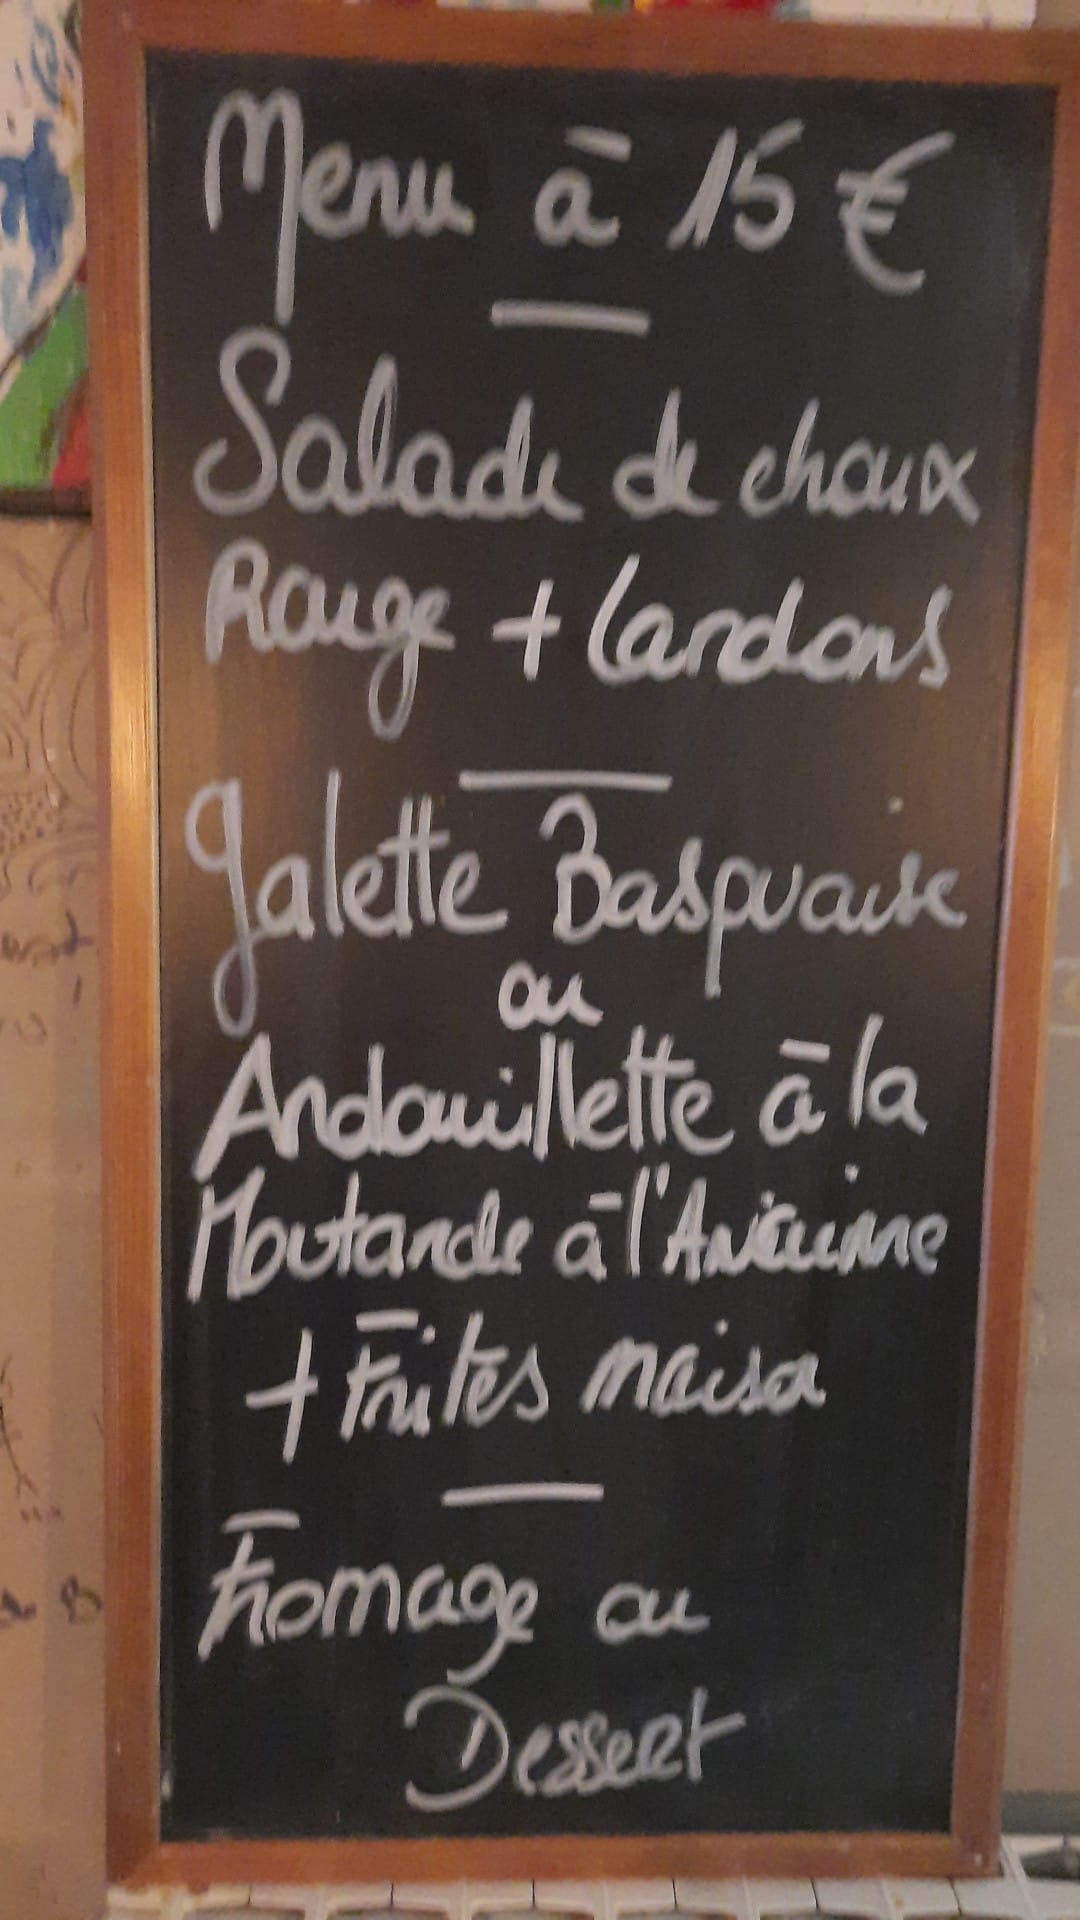 Menu à 15 €
Salade de choux
Rouge + lardons
Galette Basquaise
ou
Andouillette à la
Moutarde à l'Ancienne
+ Frites maison
Fromage ou
Dessert